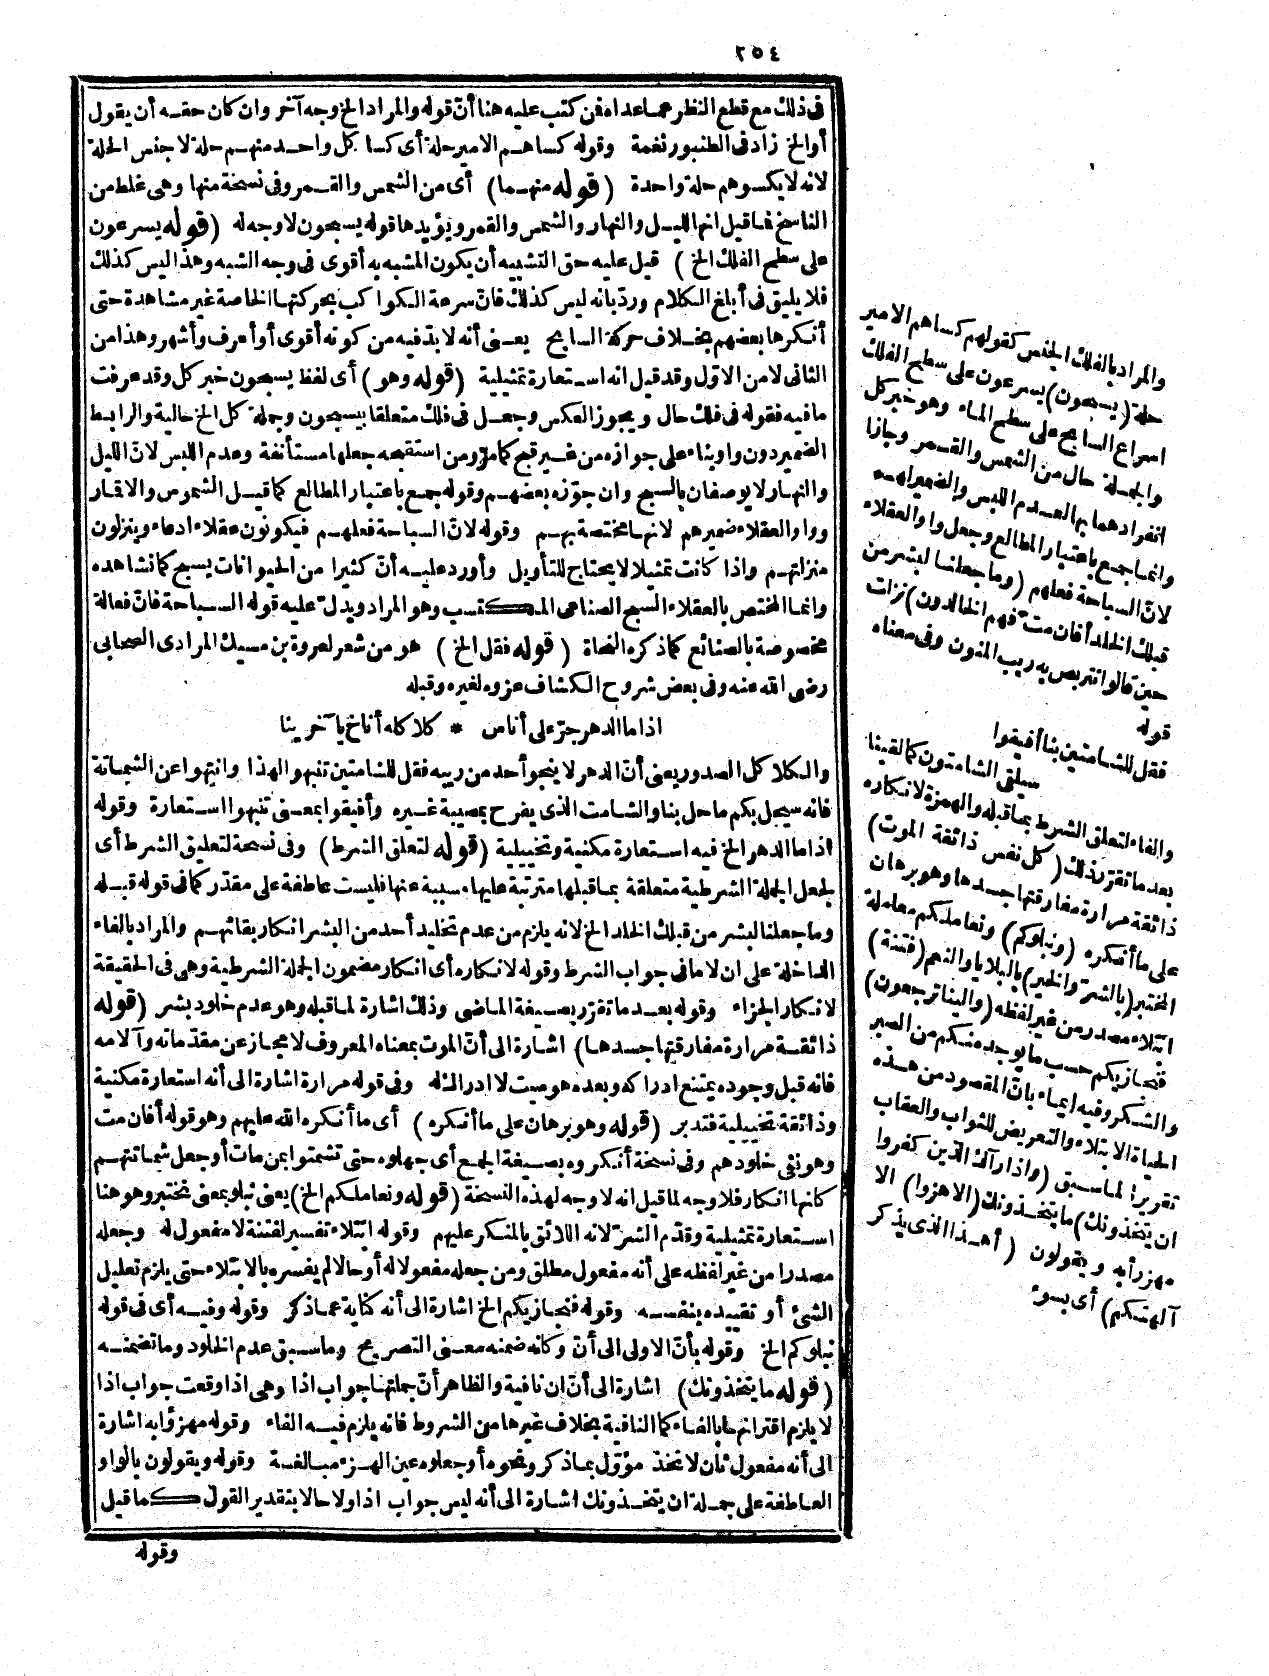 ٢٥٤
فى ذلك مع قطع النظر عما عداه فمن كتب عليه هنا أنّ قوله والمراد الخ وجه آخر وان كان حقه أن يقول
أو الخ زاد فى الطنبور نغمة وقوله كساهم الامير حلة أى كسا كل واحد منهم حلة لا جنس الحلة
لانه لا يكسوهم حلة واحدة (قوله منهما) أى من الشمس والقمر وفى نسخة منها وهى غلط من
الناسخ فما قيل انها الليل والنهار والشمس والقمر ويؤيدها قوله يسبحون لا وجه له (قوله يسرعون
على سطح الفلك الخ) قيل عليه حق التشبيه أن يكون المشبه به أقوى فى وجه الشبه وهذا ليس كذلك
فلا يليق فى أبلغ الكلام وردّ بانه ليس كذلك فانّ سرعة الكواكب بحركتها الخاصة غير مشاهدة حتى
أنكرها بعضهم بخلاف حركة السابح يعنى أنه لا بدّ فيه من كونه أقوى أو أعرف وأشهر وهذا من
الثانى لا من الاوّل وقد قيل انه استعارة تمثيلية (قوله وهو) أى لفظ يسبحون خبر كل وقد عرفت
ما فيه فقوله فى فلك حال ويجوز العكس وجعل فى فلك متعلقا بيسبحون وجملة كل الخ حالية والرابط
الضمير دون واو بناء على جوازه من غير قبح كما مرّ ومن استقبحه جعلها مستأنفة وعدم اللبس لانّ الليل
والنهار لا يوصفان بالسبح وان جوّزه بعضهم وقوله جمع باعتبار المطالع كما قيل الشموس والاقمار
وواو العقلاء ضميرهم لانها مختصة بهم وقوله لانّ السباحة فعلهم فيكونون عقلاء ادعاء وينزلون
منزلتهم واذا كانت تمثيلا لا يحتاج للتأويل وأورد عليه أنّ كثيرا من الحيوانات يسبح كما نشاهده
وانما المختص بالعقلاء السبح الصناعى المكتسب وهو المراد ويدل عليه قوله السباحة فانّ فعالة
مخصوصة بالصنائع كما ذكره النحاة (قوله فقل الخ) هو من شعر لعروة بن مسيك المرادى الصحابى
رضى الله عنه وفى بعض شروح الكشاف عزوه لغيره وقبله
اذا ما الدهر جرّ على أناس * كلاكله أناخ بآخرينا
والكلاكل الصدور يعنى أنّ الدهر لا ينجو أحد من ريبه فقل للشامتين تنبهوا لهذا وانتهوا عن الشماتة
فانه سيحل بكم ما حل بنا والشامت الذى يفرح بمصيبة غيره وأفيقوا بمعنى تنبهوا استعارة وقوله
اذا ما الدهر الخ فيه استعارة مكنية وتخييلية (قوله لتعلق الشرط) وفى نسخة لتعليق الشرط أى
لجعل الجملة الشرطية متعلقة بما قبلها مترتبة عليها مسببة عنها فليست عاطفة على مقدّر كما فى قوله قبله
وما جعلنا لبشر من قبلك الخلد الخ لانه يلزم من عدم تخليد أحد من البشر انكار بقائهم والمراد بالفاء
الداخلة على ان لا ما فى جواب الشرط وقوله لانكاره أى انكار مضمون الجملة الشرطية وهى فى الحقيقة
لانكار الجزاء وقوله بعد ما تقرّر بصيغة الماضى وذلك اشارة لما قبله وهو عدم خلود بشر (قوله
ذائقة مرارة مفارقتها جسدها) اشارة الى أنّ الموت بمعناه المعروف لا مجاز عن مقدّماته وآلامه
فانه قبل وجوده يمتنع ادراكه وبعده هو ميت لا ادراك له وفى قوله مرارة اشارة الى أنه استعارة مكنية
وذائقة تخييلية فتدبر (قوله وهو برهان على ما أنكره) أى ما أنكره الله عليهم وهو قوله أفان مت
وهو نفى خلودهم وفى نسخة أنكروه بصيغة الجمع أى جهلوه حتى تشمتوا بمن مات أو جعل شماتتهم
كأنها انكار فلا وجه لما قيل انه لا وجه لهذه النسخة (قوله ونعاملكم الخ) يعنى نبلو بمعنى نختبر وهو هنا
استعارة تمثيلية وقدّم الشرّ لانه اللائق بالمنكر عليهم وقوله ابتلاء تفسير لفتنة لا مفعول له وجعله
مصدرا من غير لفظه على أنه مفعول مطلق ومن جعله مفعولا له أو حالا لم يفسره بالابتلاء حتى يلزم تعليل
الشئ أو تقييده بنفسه وقوله فنجازيكم الخ اشارة الى أنه كناية عما ذكر وقوله وفيه أى فى قوله
نبلوكم الخ وقوله بأنّ الاولى الى أنّ وكأنه ضمنه معنى التصريح وما سبق عدم الخلود وما تضمنه
(قوله ما يتخذونك) اشارة الى أنّ ان نافية والظاهر أنّ جملتها جواب اذا وهى اذا وقعت جواب اذا
لا يلزم اقترانها بالفاء كما النافية بخلاف غيرها من الشروط فانه يلزم فيه الفاء وقوله مهزوّا به اشارة
الى أنه مفعول ثان لا نتخذ مؤوّل بما ذكر ونحوه أو جعلوه عين الهزء مبالغة وقوله ويقولون بالواو
العاطفة على جملة ان يتخذونك اشارة الى أنه ليس جواب اذا ولا حالا بتقدير القول كما قيل
وقوله
والمراد بالفلك الجنس كقولهم كساهم الامير
حلة (يسبحون) يسرعون على سطح الفلك
اسراع السابح على سطح الماء وهو خبر كل
والجملة حال من الشمس والقمر وجاز
انفرادهما بها لعدم اللبس والضمير لهما
وانما جمع باعتبار المطالع وجعل واو العقلاء
لانّ السباحة فعلهم (وما جعلنا لبشر من
قبلك الخلد أفان مت فهم الخالدون) نزلت
حين قالوا نتربص به ريب المنون وفى معناه
قوله
فقل للشامتين بنا أفيقوا
سيلقى الشامتون كما لقينا
والفاء لتعلق الشرط بما قبله والهمزة لانكاره
بعد ما تقرّر ذلك (كل نفس ذائقة الموت)
ذائقة مرارة مفارقتها جسدها وهو برهان
على ما أنكره (ونبلوكم) ونعاملكم معاملة
المختبر (بالشرّ والخير) بالبلايا والنعم (فتنة)
ابتلاء مصدر من غير لفظه (والينا ترجعون)
فنجازيكم حسب ما يوجد منكم من الصبر
والشكر وفيه ايماء بانّ المقصود من هذه
الحياة الابتلاء والتعريض للثواب والعقاب
تقريرا لما سبق (واذا رآك الذين كفروا
ان يتخذونك) ما يتخذونك (الا هزوا) الا
مهزوأ به ويقولون (أهذا الذى يذكر
آلهتكم) أى بسوء